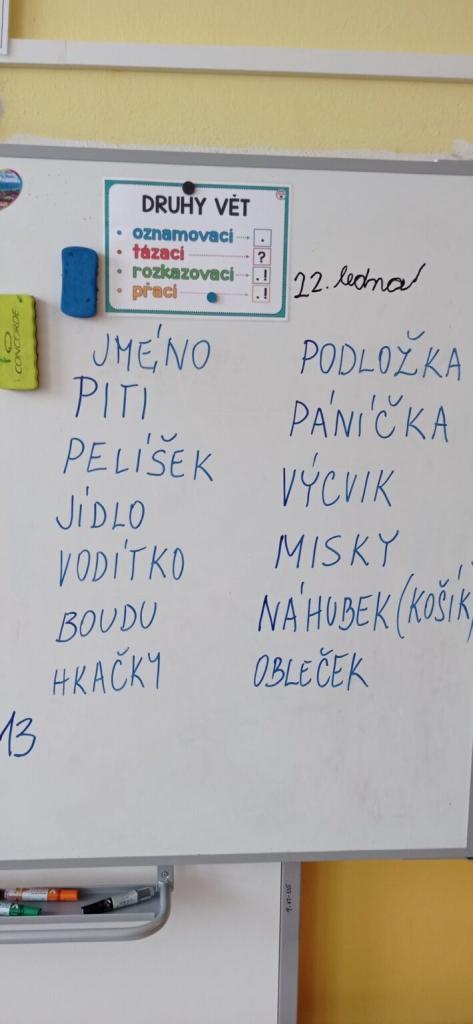 DRUHY VĚT
oznamovací .
tázací ?
rozkazovací .!
přací .!
22. ledna
CONCORDE
JMÉNO
PITÍ
PELÍŠEK
JÍDLO
VODÍTKO
BOUDU
HKAČKY
13
PODLOŽKA
PÁNÍČKA
VÝCVIK
MISKY
NÁHUBEK (KOŠÍK)
OBLEČEK